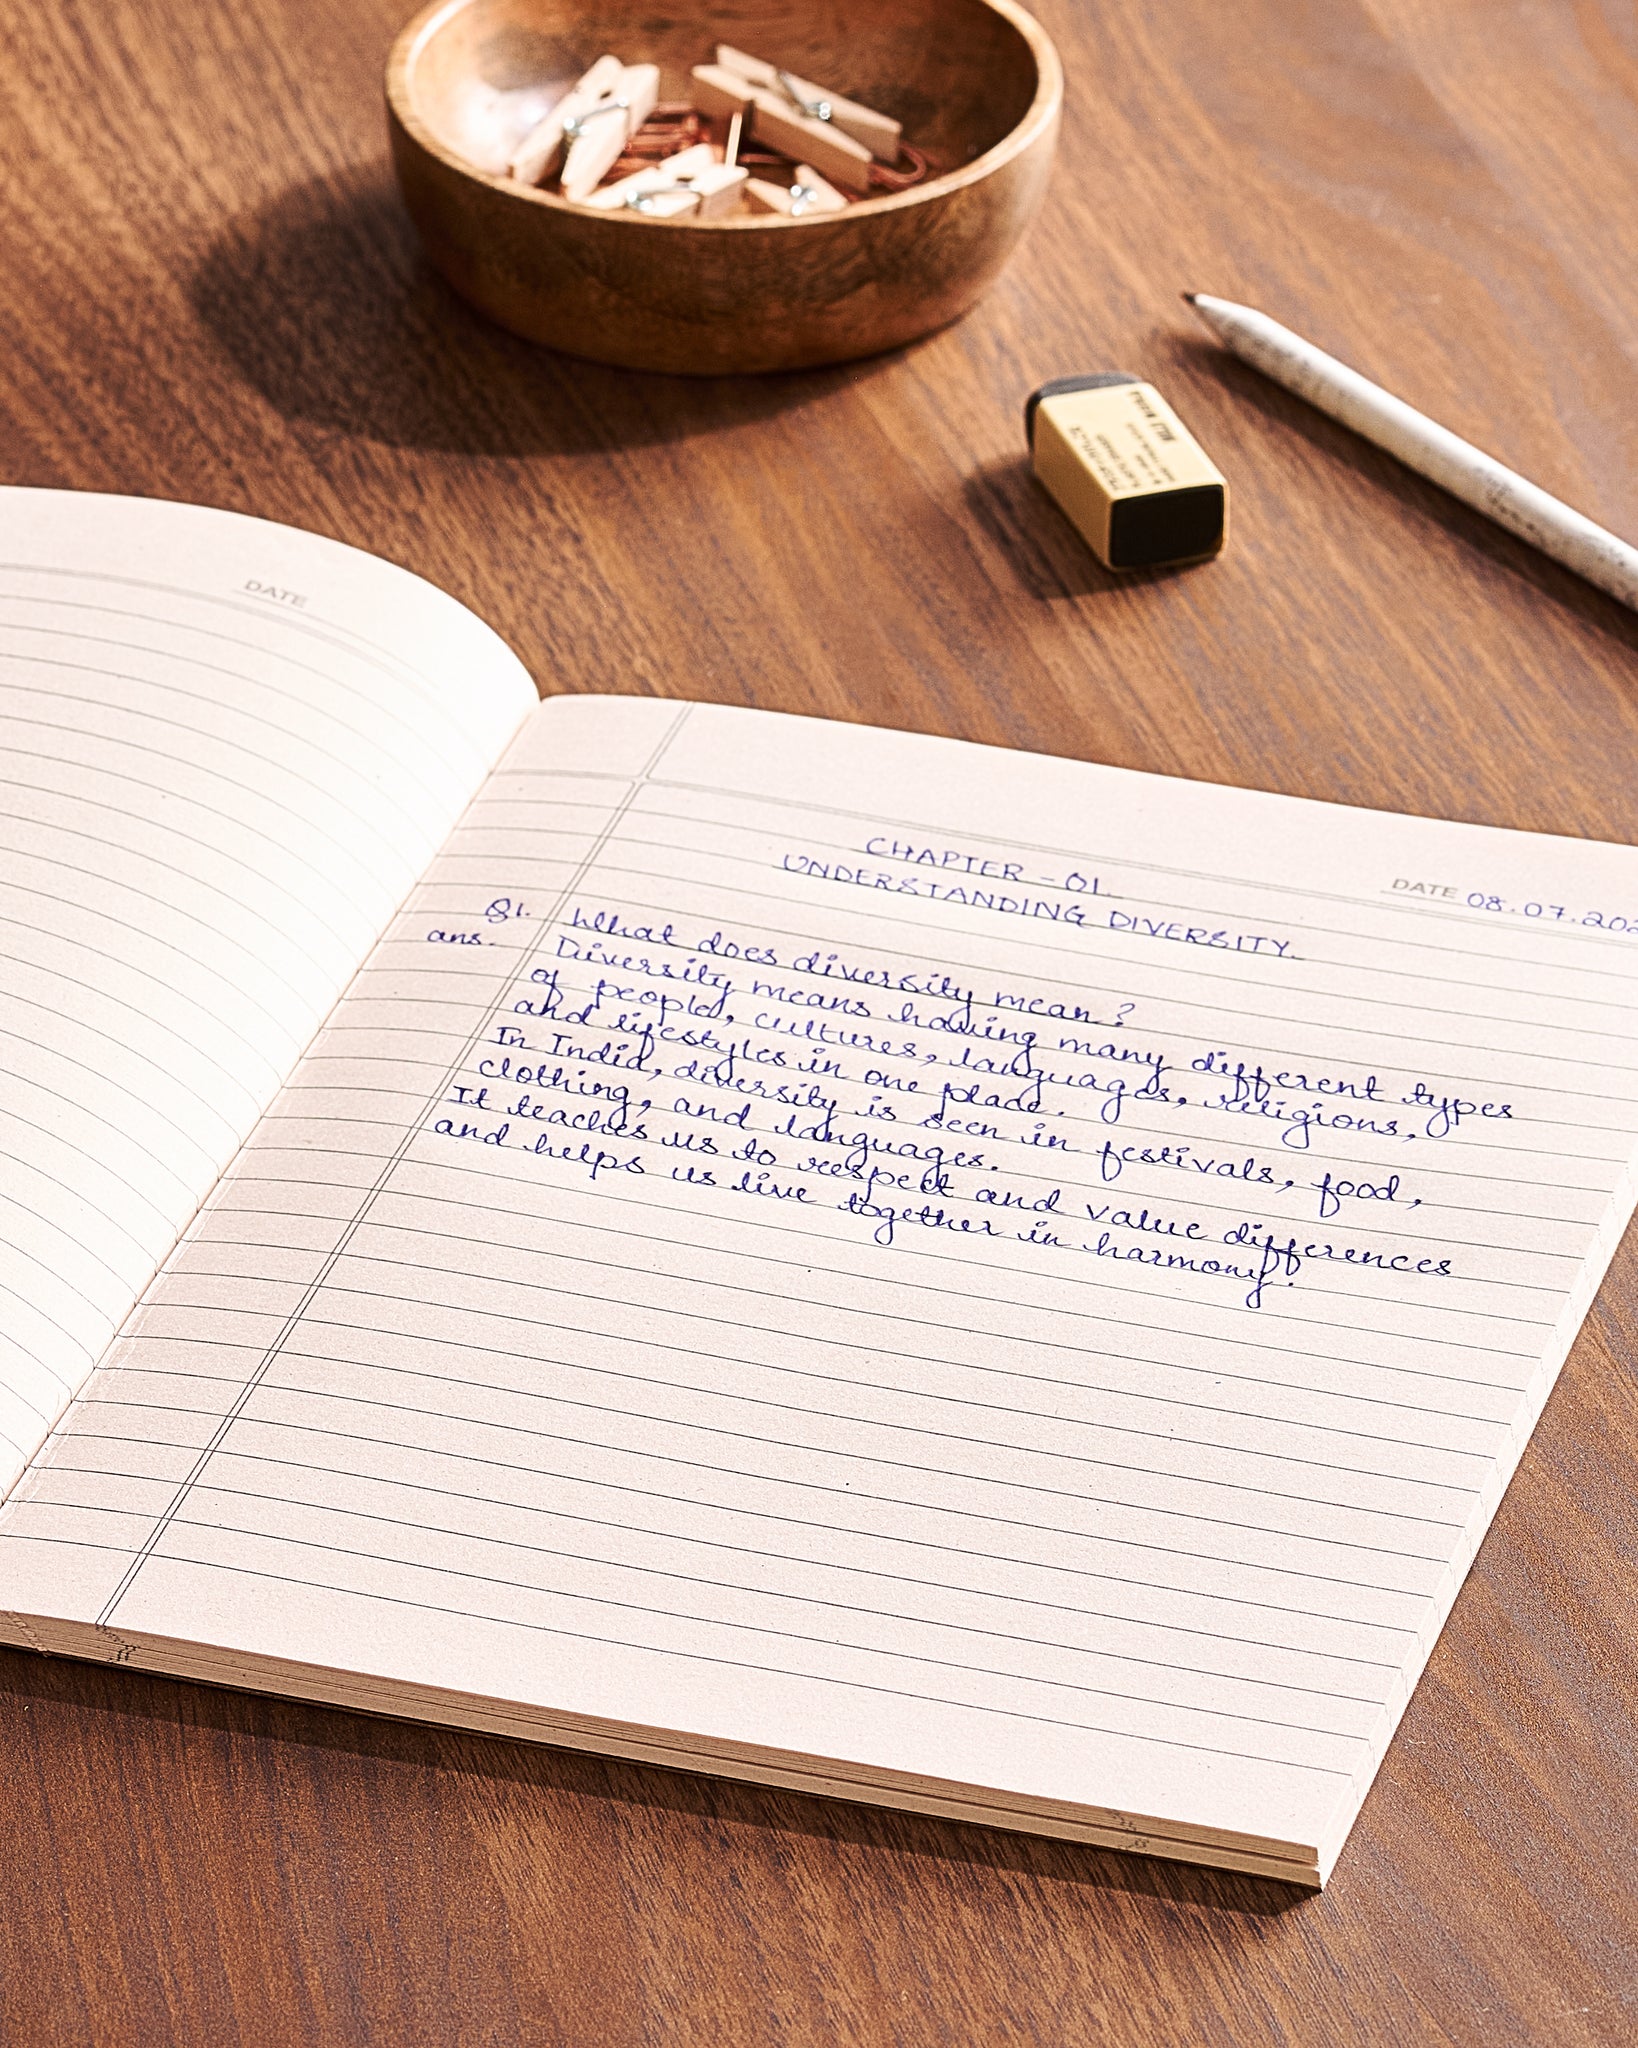 DATE
CHAPTER - 01.
DATE 08.07.202
UNDERSTANDING DIVERSITY.
Q1. What does diversity mean?
ans. Diversity means having many different types
of people, cultures, languages, religions,
and lifestyles in one place.
In India, diversity is seen in festivals, food,
clothing, and languages.
It teaches us to respect and value differences
and helps us live together in harmony.